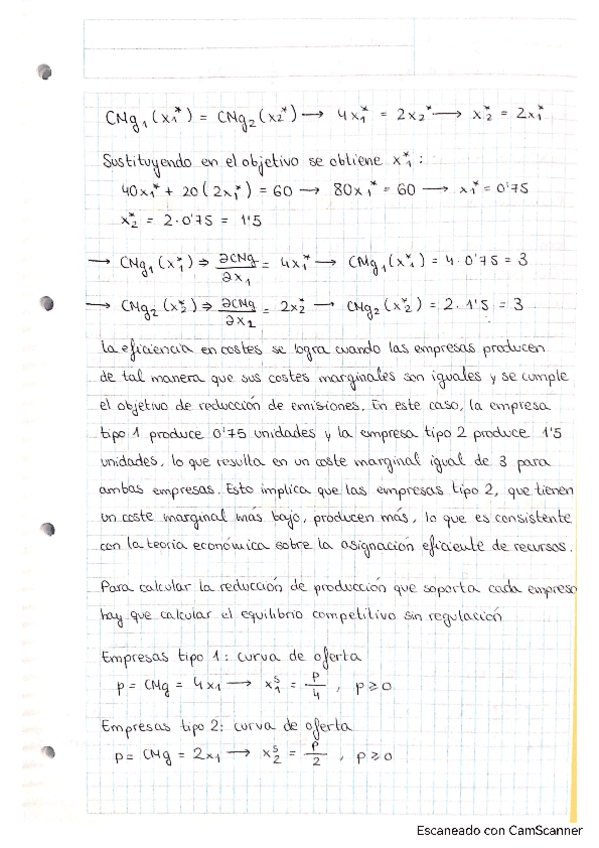 CMg₁(x₁*) = CMg₂(x₂*) → 4x₁* = 2x₂* → x₂* = 2x₁*
Sustituyendo en el objetivo se obtiene x₁*:
40x₁* + 20(2x₁*) = 60 → 80x₁* = 60 → x₁* = 0'75
x₂* = 2·0'75 = 1'5
→ CMg₁(x₁*) ⇒ ∂CMg/∂x₁ = 4x₁* → CMg₁(x₁*) = 4·0'75 = 3
→ CMg₂(x₂*) ⇒ ∂CMg/∂x₂ = 2x₂* → CMg₂(x₂*) = 2·1'5 = 3
La eficiencia en costes se logra cuando las empresas producen
de tal manera que sus costes marginales son iguales y se cumple
el objetivo de reducción de emisiones. En este caso, la empresa
tipo 1 produce 0'75 unidades y la empresa tipo 2 produce 1'5
unidades, lo que resulta en un coste marginal igual de 3 para
ambas empresas. Esto implica que las empresas tipo 2, que tienen
un coste marginal más bajo, producen más, lo que es consistente
con la teoría económica sobre la asignación eficiente de recursos.
Para calcular la reducción de producción que soporta cada empresa
hay que calcular el equilibrio competitivo sin regulación
Empresas tipo 1: curva de oferta
p = CMg = 4x₁ → x₁ˢ = p/4, p ≥ 0
Empresas tipo 2: curva de oferta
p = CMg = 2x₁ → x₂ˢ = p/2, p ≥ 0
Escaneado con CamScanner